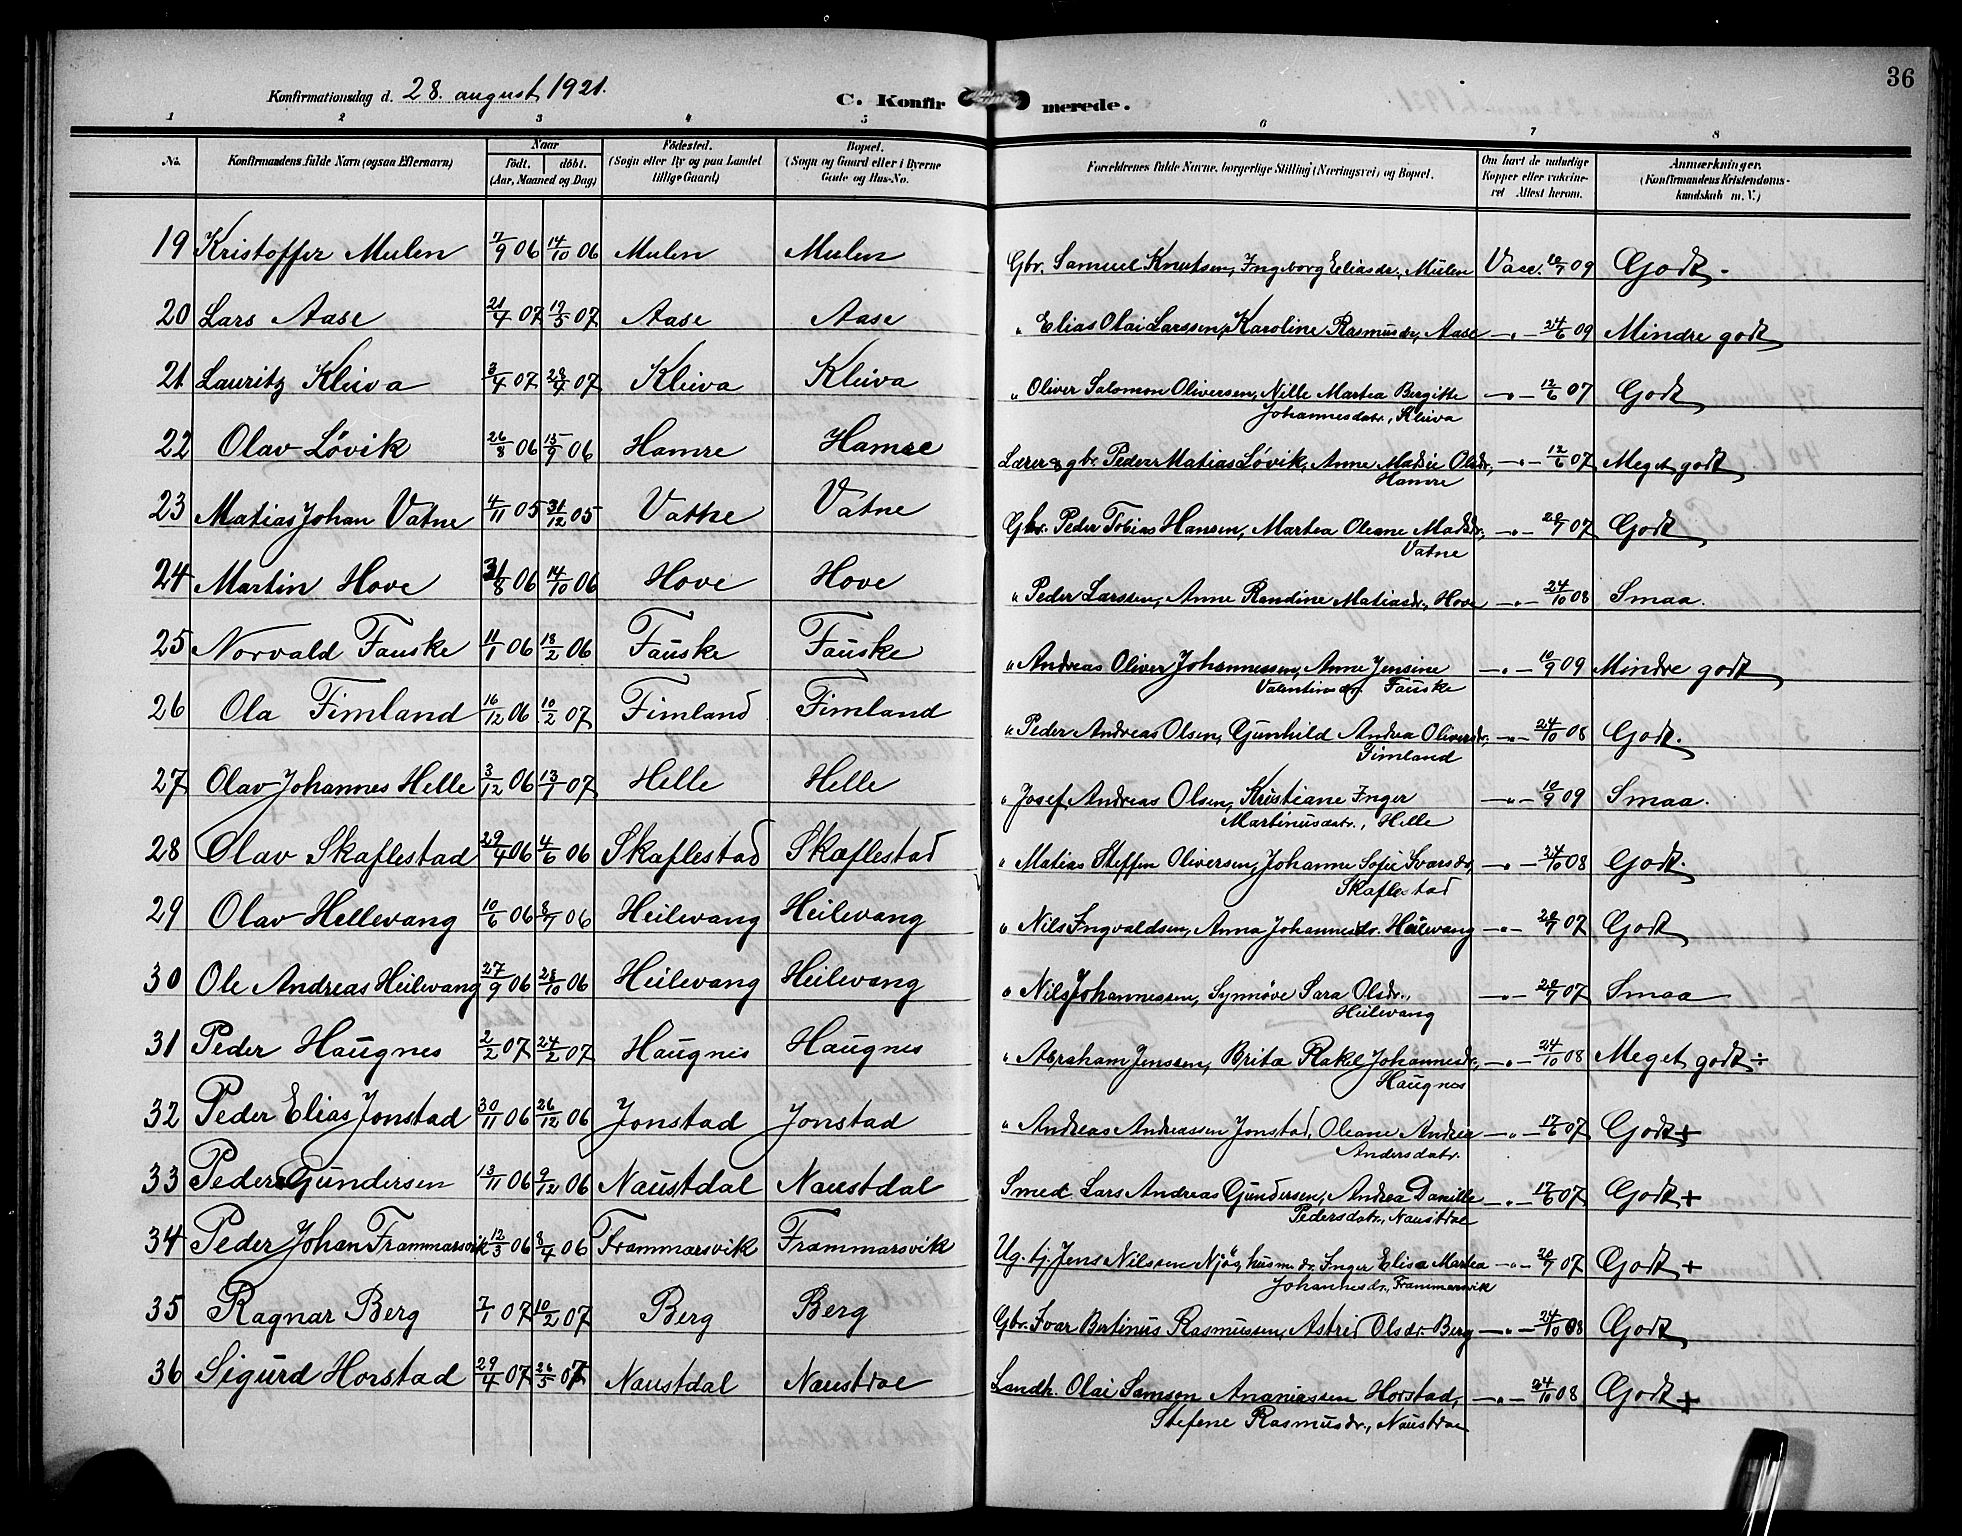 36
Konfirmationsdag d. 28. august 1921.
C. Konfir merede.
1 2 3 4 5 6 7 8
No. Konfirmandens fulde Navn (ogsaa Efternavn) Naar født. døbt. (Aar, Maaned og Dag) Fødested. (Sogn eller By og paa Landet tillige Gaard) Bopæl. (Sogn og Gaard eller i Byerne Gade og Hus-No. Forældrenes fulde Navne, borgerlige Stilling (Næringsvei) og Bopæl. Om havt de naturlige Kopper eller vaccineret Attest herom. Anmærkninger. (Konfirmandens Kristendomskundskab m. V.)
19 Kristoffer Mulen 7/9 06 14/10 06 Mulen Mulen Gbr. Samuel Knutsen, Ingeborg Eliasdr., Mulen Vacc. 10/7 09 Godt.
20 Lars Aase 21/4 07 19/5 07 Aase Aase " Elias Olai Larssen, Karoline Rasmusdr., Aase -"- 24/6 09 Mindre godt
21 Lauritz Kleiva 3/4 07 28/4 07 Kleiva Kleiva " Oliver Salomon Oliversen, Nille Martea Bergitte -"- 12/6 07 Godt
Johannesdatr., Kleiva
22 Olav Løvik 26/8 06 15/9 06 Hamre Hamre Lærer & gbr. Peder Matias Løvik, Anne Madsie Olsdr., -"- 12/6 07 Meget godt
Hamre
23 Matias Johan Vatne 4/11 05 31/12 05 Vatne Vatne Gbr. Peder Tobias Hansen, Martea Oleane Madsdr., -"- 20/7 07 Godt
Vatne
24 Martin Hove 31/8 06 14/10 06 Hove Hove " Peder Larssen, Anne Randine Matiasdr., Hove -"- 24/10 08 Smaa.
25 Norvald Fauske 11/1 06 18/2 06 Fauske Fauske " Andreas Oliver Johannessen, Anne Jensine -"- 10/9 09 Mindre godt
Valentinsdr. Fauske
26 Ola Fimland 16/12 06 10/2 07 Fimland Fimland " Peder Andreas Olsen, Gunhild Andrea Oliversdr., -"- 24/10 08 Godt.
Fimland
27 Olav Johannes Helle 3/12 06 13/1 07 Helle Helle " Josef Andreas Olsen, Kristiane Inger -"- 10/9 09 Smaa.
Martinusdatr., Helle
28 Olav Skaflestad 29/4 06 4/6 06 Skaflestad Skaflestad " Matias Steffen Oliversen, Johanne Sofie Ivarsdr, -"- 24/10 08 Godt.
Skaflestad
29 Olav Hellevang 10/6 06 8/7 06 Heilevang Heilevang " Nils Ingvaldsen, Anna Johannesdr. Heilevang -"- 20/7 07 Godt
30 Ole Andreas Heilevang 27/9 06 28/10 06 Heilevang Heilevang " Nils Johannessen, Synnøve Sara Olsdr., -"- 20/7 07 Smaa
Heilevang
31 Peder Haugnes 2/2 07 24/2 07 Haugnes Haugnes " Abraham Jenssen, Brita Rakel Johannesdr., -"- 24/10 08 Meget godt ÷
Haugnes
32 Peder Elias Jonstad 30/11 06 26/12 06 Jonstad Jonstad " Andreas Andreassen Jonstad, Oleane Andrea -"- 17/6 07 Godt +
Andersdatr.
33 Peder Gundersen 13/11 06 9/12 06 Naustdal Naustdal Smed Lars Andreas Gundersen, Andrea Danille -"- 17/6 07 Godt +
Pedersdatr., Naustdal
34 Peder Johan Frammarsvik 12/3 06 8/4 06 Frammarsvik Frammarsvik Ug. tj. Jens Nilssen Njøs, husm. dr. Inger Elisa Martea -"- 20/7 07 Godt +
Johannesdr., Frammarsvik
35 Ragnar Berg 7/1 07 10/2 07 Berg Berg Gbr. Ivar Bertinus Rasmussen, Astrid Olsdr. Berg -"- 24/10 08 Godt
36 Sigurd Horstad 29/4 07 26/5 07 Naustdal Naustdal Landh. Olai Samson Ananiassen Horstad, -"- 24/10 08 Godt +
Stefene Rasmusdr., Naustdal